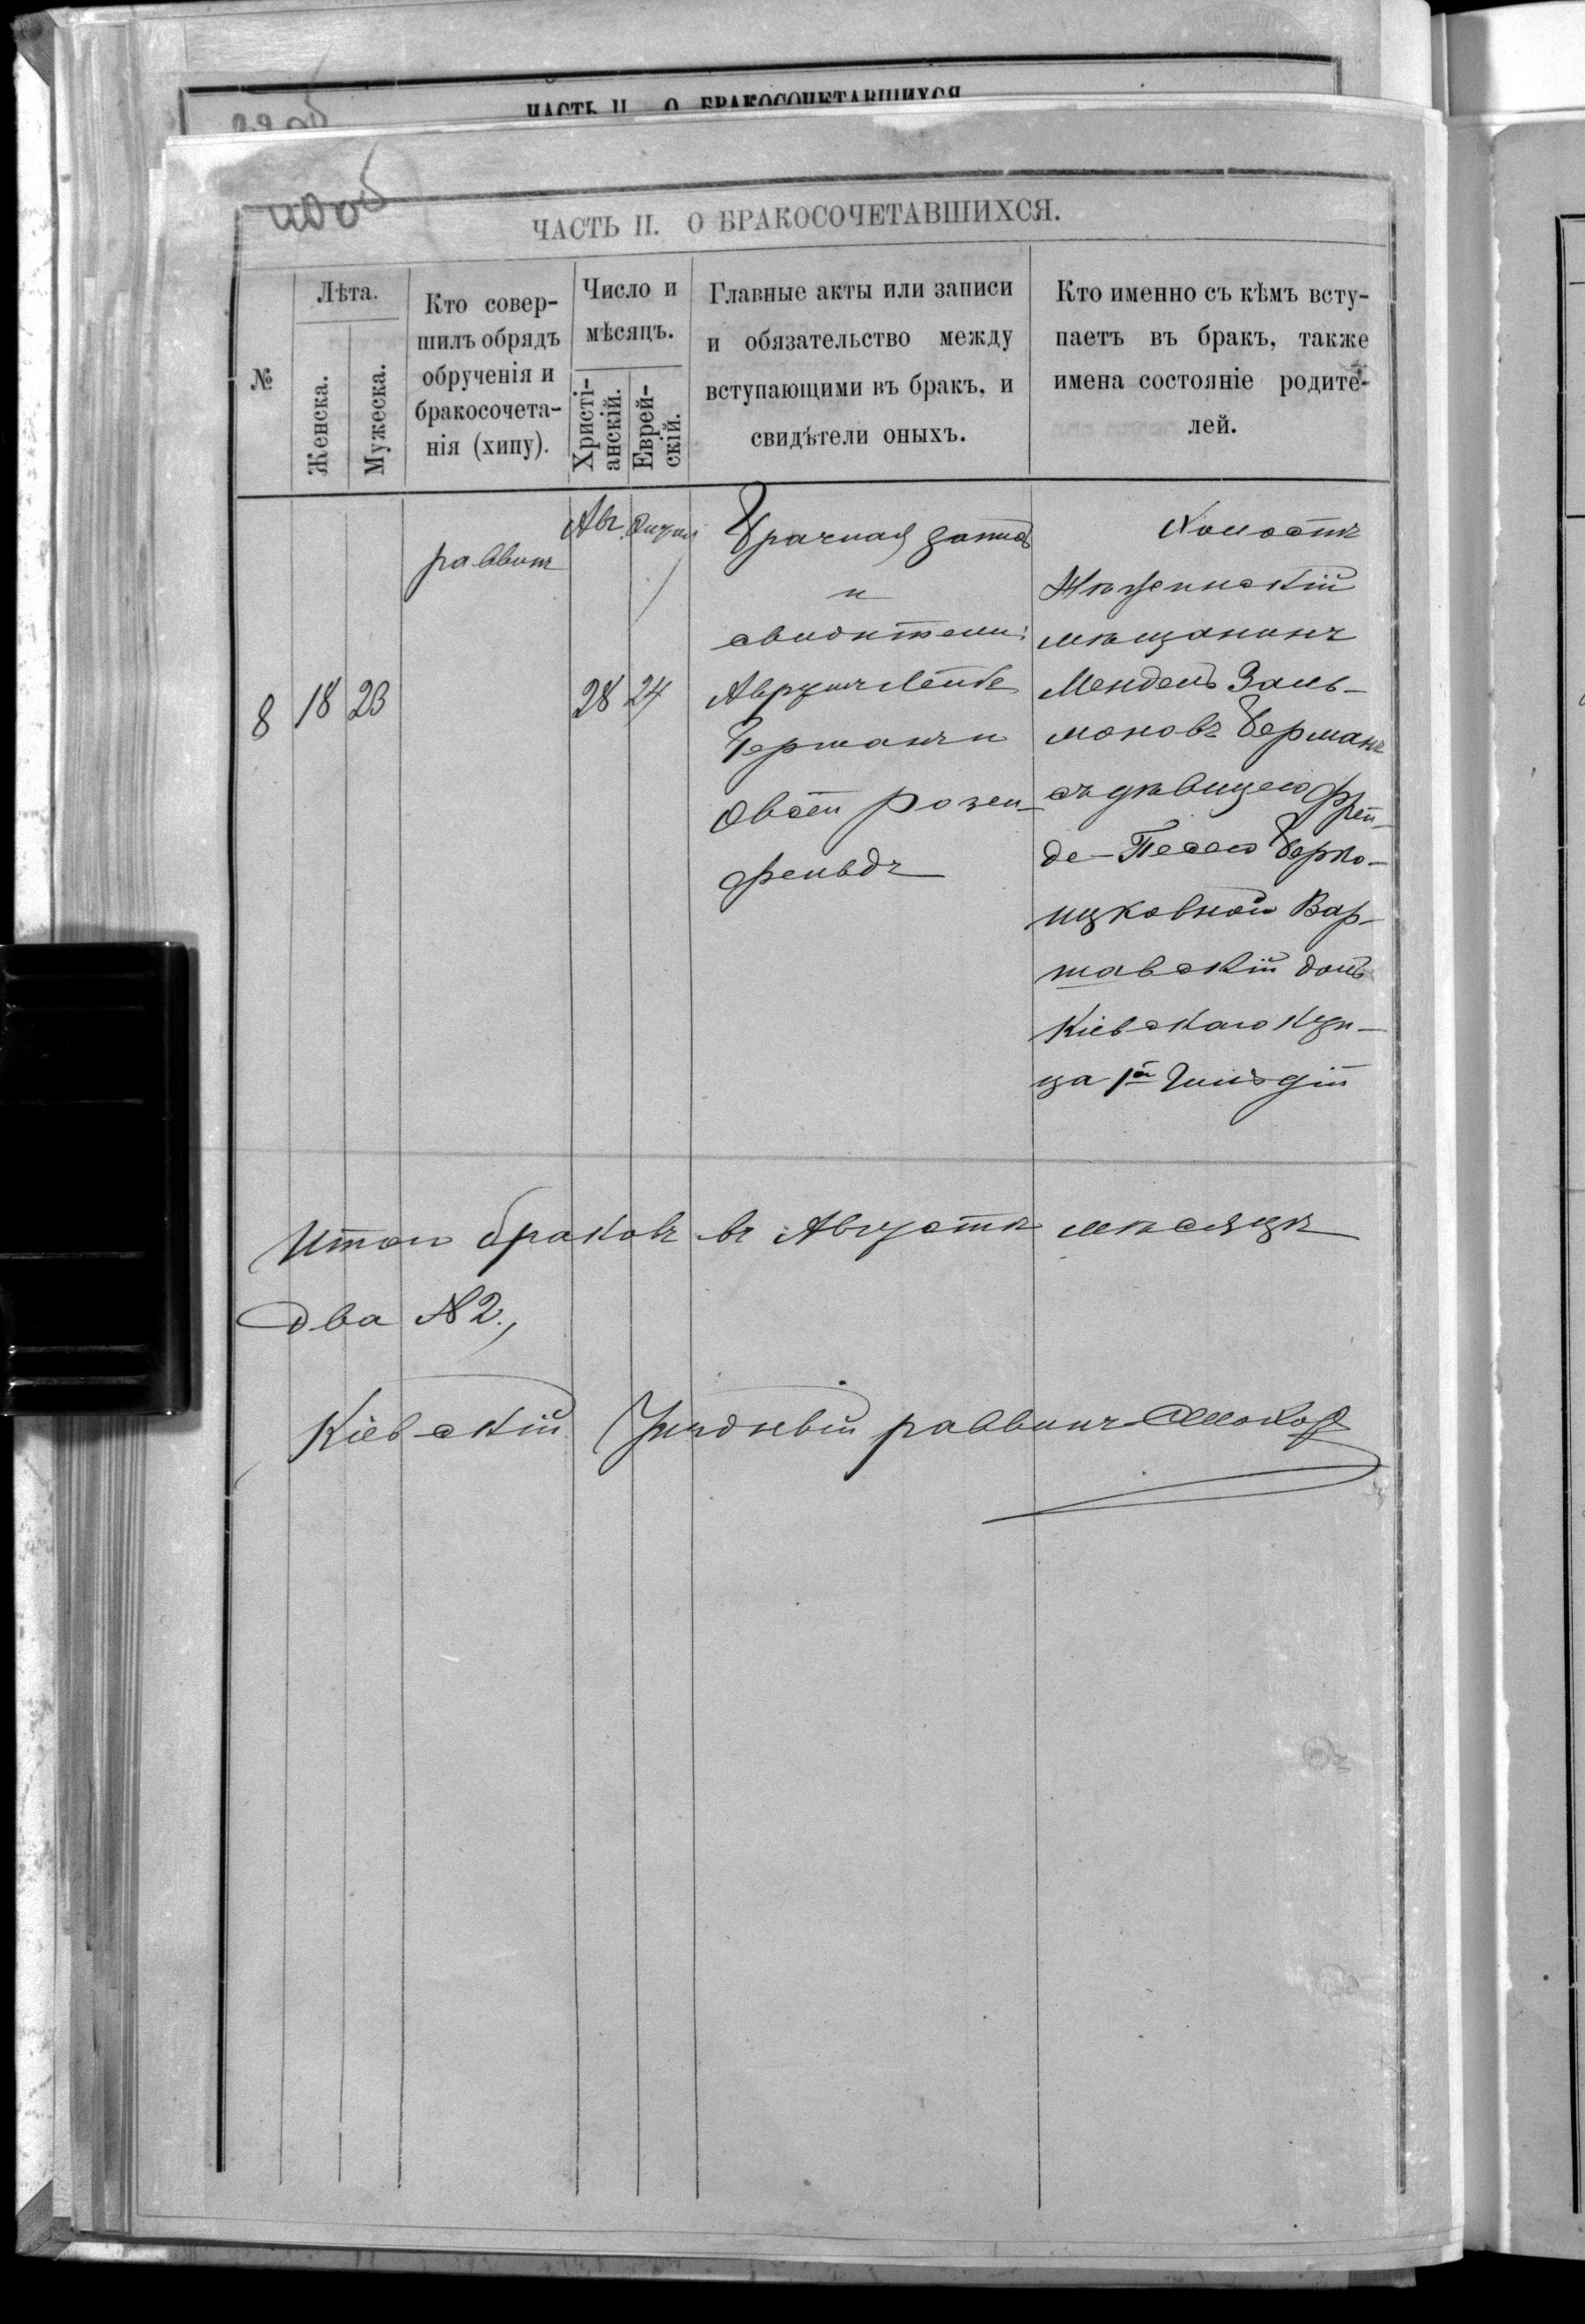 ЧАСТЬ II. О БРАКОСОЧЕТАВШИХСЯ
40 об
ЧАСТЬ II. О БРАКОСОЧЕТАВШИХСЯ.
№
Лѣта.
Женска.
Мужеска.
Кто совер-
шилъ обрядъ
обрученія и
бракосочета-
нія (хипу).
Число и
мѣсяцъ.
Христі-
анскій.
Еврей-
скій.
Главные акты или записи
и обязательство между
вступающими въ бракъ, и
свидѣтели оныхъ.
Кто именно съ кѣмъ всту-
паетъ въ бракъ, также
имена состояніе родите-
лей.
8
18
23
раввинъ
Авг.
28
24
Брачная запись
и
свидѣтели:
Аврумъ Лейбъ
Берманъ и
Овсей Розен-
фельдъ
Холостъ
Нѣжинскій
мѣщанинъ
Мендель Заль-
моновъ Берманъ
съ дѣвицею Фрей-
де-Песею Берко-
ицковной Вар-
шавскій дочь
Кіевскаго Куп-
ца 1й Гильдіи
Итого браковъ въ Августѣ мѣсяцѣ
два № 2.,
Кіевскій Уѣздный раввинъ